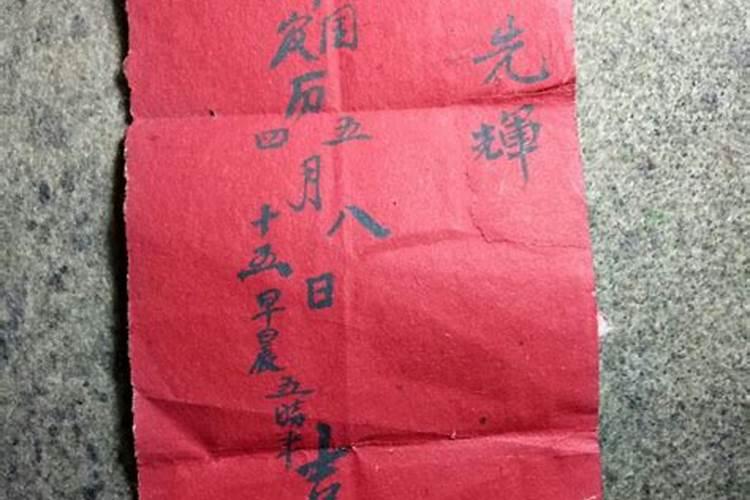 先輝
国
五
八
历月日吉
农四十五早晨五時半